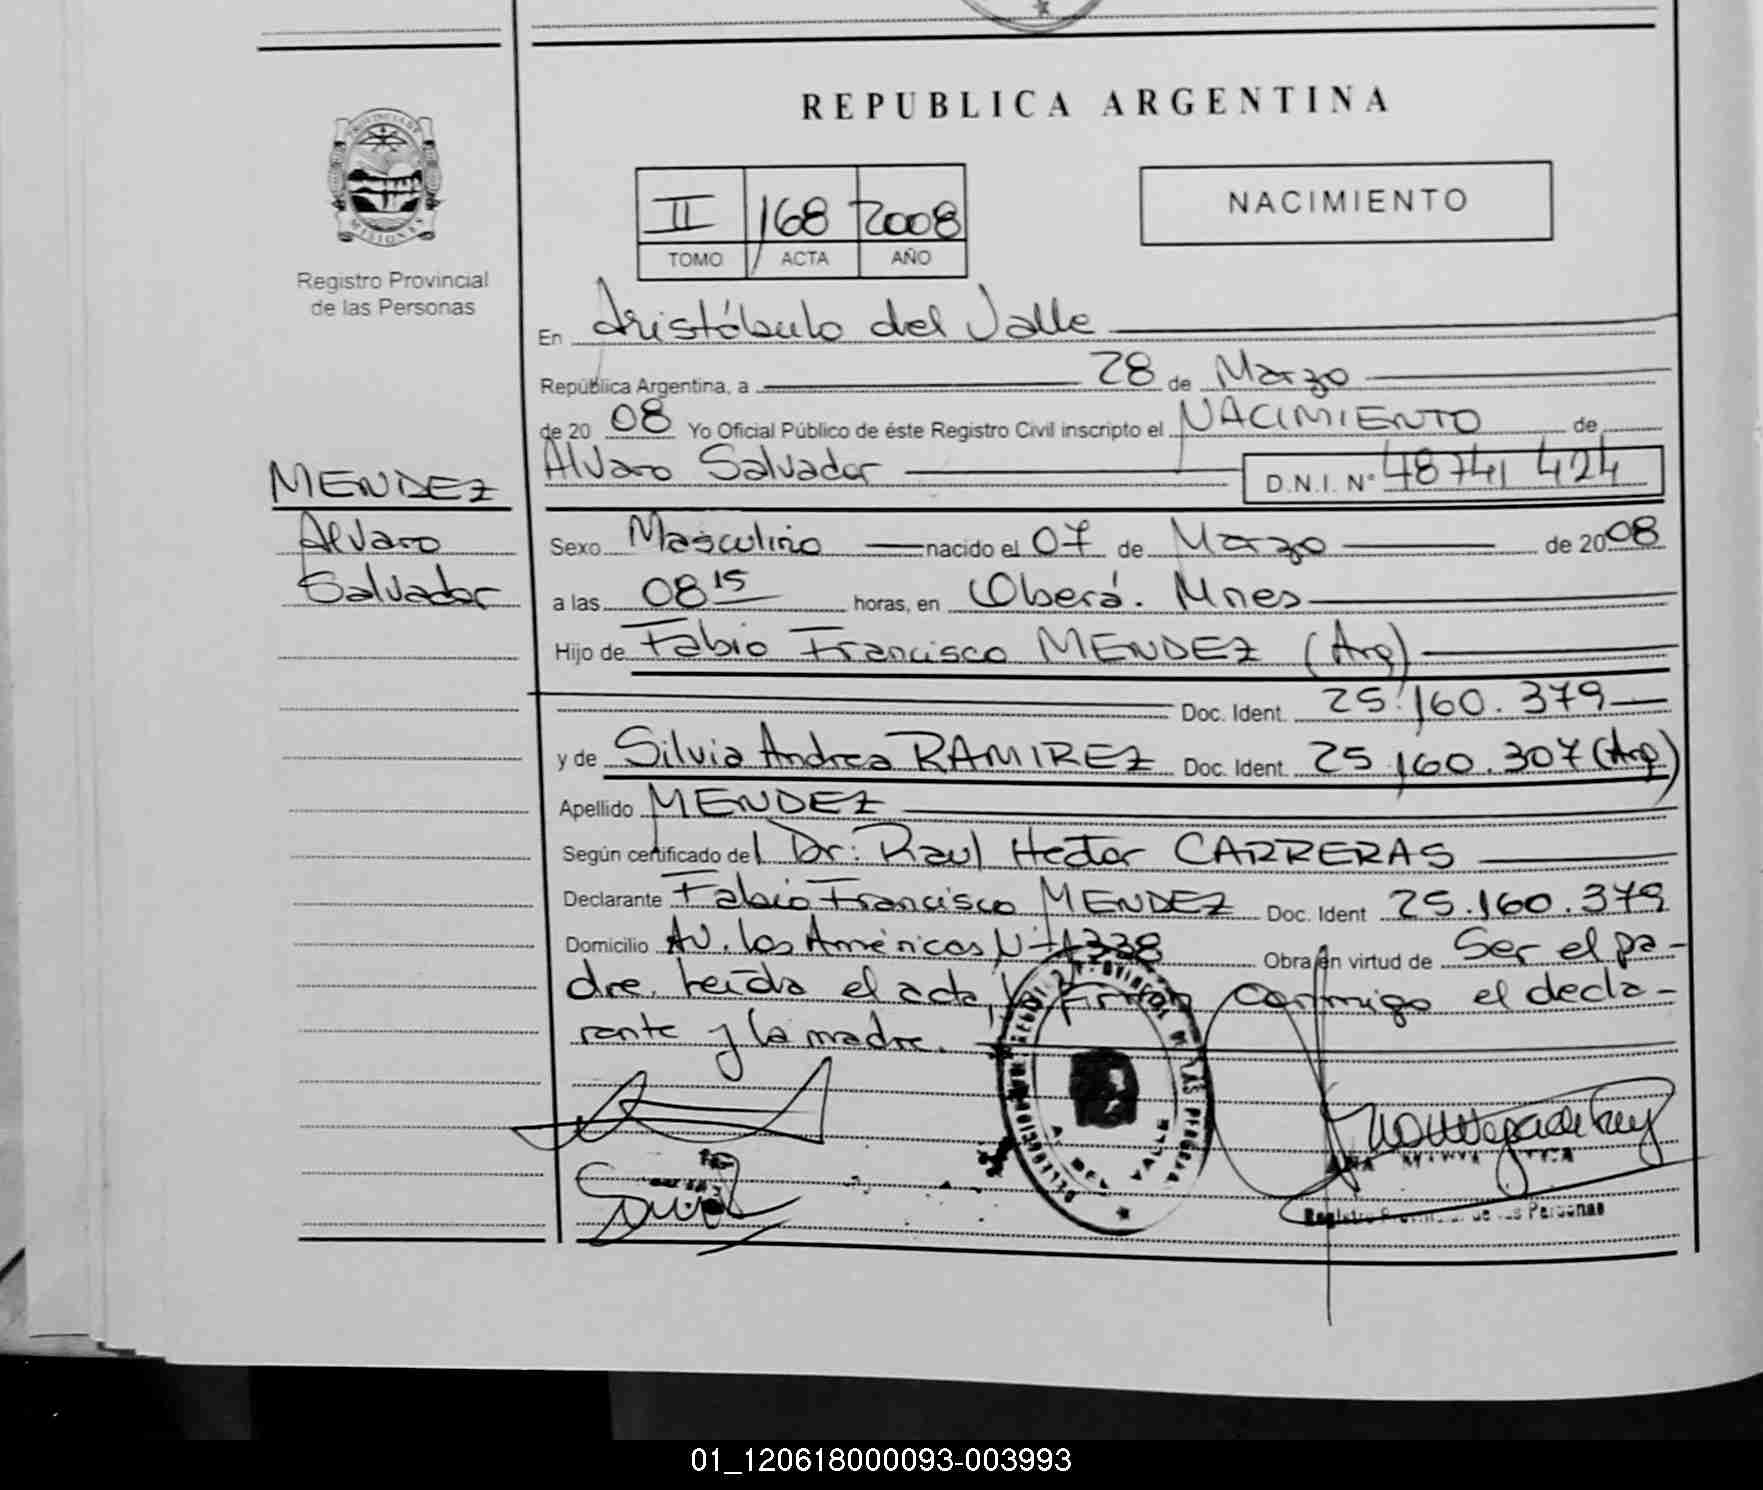 REPUBLICA ARGENTINA
PROVINCIA DE
MISIONES
Registro Provincial
de las Personas
II 168 2008
TOMO ACTA AÑO
NACIMIENTO
En Aristóbulo del Valle
República Argentina, a 28 de Marzo
de 20 08 Yo Oficial Público de éste Registro Civil inscripto el NACIMIENTO de
Alvaro Salvador D.N.I. N° 48741 424
MENDEZ
Alvaro
Salvador
Sexo Masculino nacido el 07 de Marzo de 2008
a las 08 15 horas, en Oberá. Mnes
Hijo de Fabio Francisco MENDEZ (Arg)
Doc. Ident. 25.160.379
y de Silvia Andrea RAMIREZ Doc. Ident. 25.160.307 (Arg)
Apellido MENDEZ
Según certificado del Dr. Raul Hector CARRERAS
Declarante Fabio Francisco MENDEZ Doc. Ident 25.160.379
Domicilio Av. las Américas N° 1338 Obra en virtud de Ser el pa-
dre. leída el acta, firman conmigo el decla-
rante y la madre.
A. DEL VALLE
Registro Provincial de las Personas
01_120618000093-003993